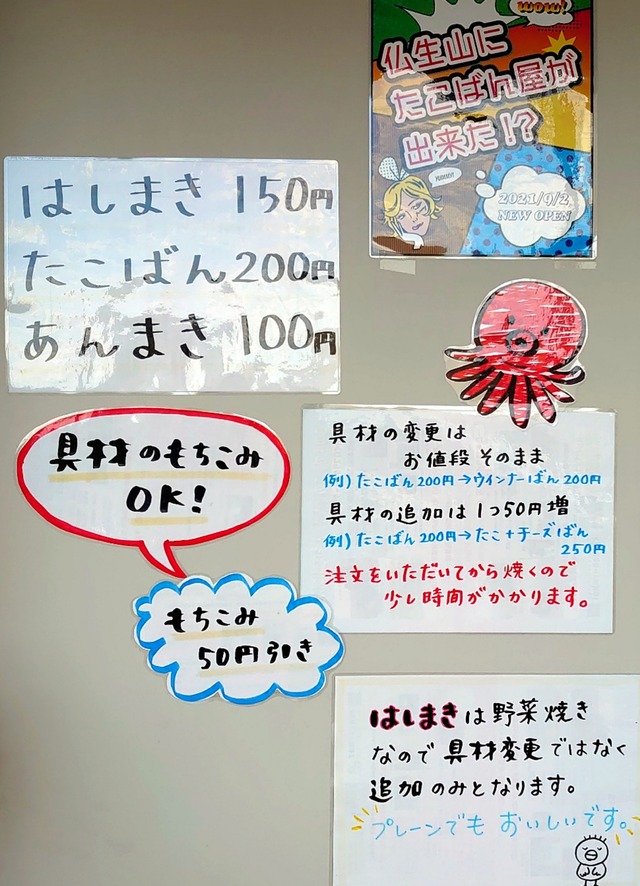 wow!
仏生山に
たこばん屋が
出来た!?
YUMMY!
2021/9/2
NEW OPEN
はしまき 150円
たこばん 200円
あんまき 100円
具材のもちこみ
OK!
もちこみ
50円引き
具材の変更は
お値段そのまま
例)たこばん200円→ウインナーばん200円
具材の追加は1つ50円増
例)たこばん200円→たこ+チーズばん
250円
注文をいただいてから焼くので
少し時間がかかります。
はしまきは野菜焼き
なので具材変更ではなく
追加のみとなります。
プレーンでもおいしいです。